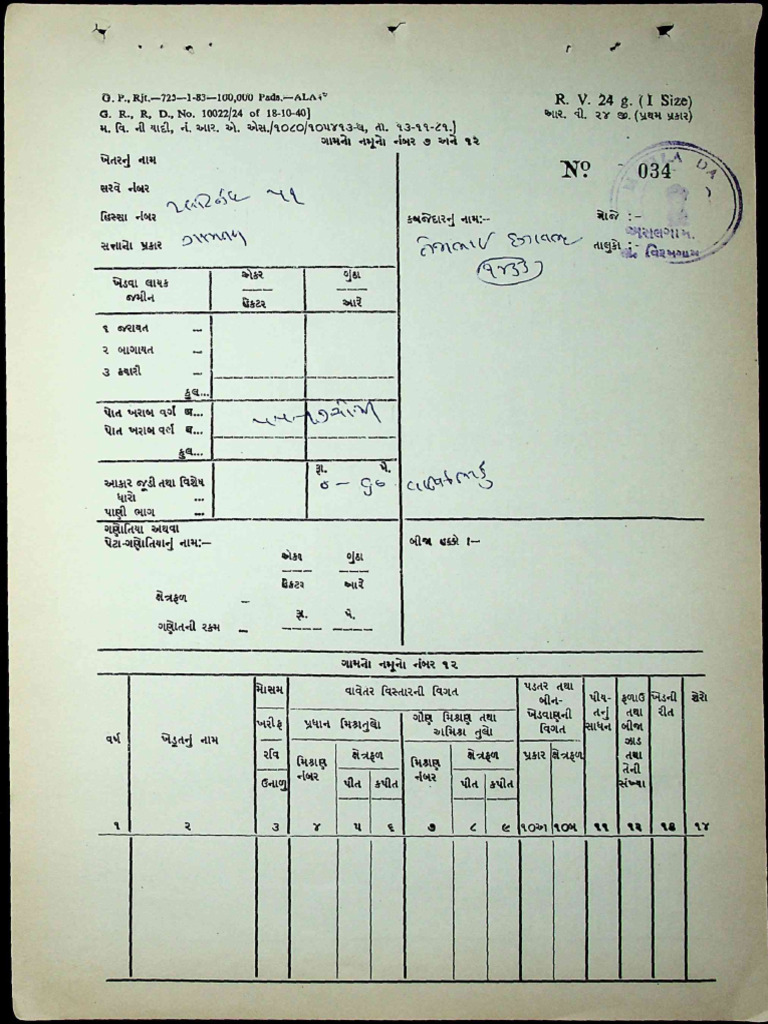 G. P., Rjt.—723—1-83—100,000 Pads.—ALA
G. R., R. D., No. 10022/24 of 18-10-40]
R. V. 24 g. (I Size)
આર. વી. ૨૪ જી. (પ્રથમ પ્રકાર)
મ. વિ. ની યાદી, નં. આર. એ. એસ./૧૦૮૦/૧૦૫૪૧૩-ધ, તા. ૧૩-૧૧-૮૧.]
ગામનો નમૂનો નંબર ૭ અને ૧૨
ખેતરનું નામ
Nº 034
સરવે નંબર
હિસ્સા નંબર
૫૧
સત્તાનો પ્રકાર
કબજેદારનું નામ:—
૧૪૩૩
મોજે :-
અસલગામ.
તાલુકો :-
વિરમગામ
ખેડવા લાયક જમીન
એકર
ગુંઠા
હેક્ટર
આરે
૧ જરાયત —
૨ બાગાયત —
૩ ક્યારી —
કુલ...
પોત ખરાબ વર્ગ અ...
પોત ખરાબ વર્લ બ...
કુલ...
રૂા. પૈ.
આકાર જૂડી તથા વિશેષ
ધારો ...
પાણી ભાગ ...
ગણોતિયા અથવા
પેટા-ગણોતિયાનું નામ:—
બીજા હક્કો :—
એકર
ગુંઠા
હેક્ટર
આરે
ક્ષેત્રફળ —
રૂા. પૈ.
ગણોતની રકમ —
ગામનો નમૂનો નંબર ૧૨
વર્ષ
ખેડૂતનું નામ
મોસમ
ખરીફ
રવિ
ઉનાળુ
વાવેતર વિસ્તારની વિગત
પ્રધાન મિશ્રાતુલો
ગૌણ મિશ્રણ તથા અમિશ્ર તુલો
મિશ્રણ નંબર
ક્ષેત્રફળ
પીત
કપીત
મિશ્રણ નંબર
ક્ષેત્રફળ
પીત
કપીત
પડતર તથા બીન-ખેડવાણની વિગત
પ્રકાર
ક્ષેત્રફળ
પીય-તનું સાધન
ફળાઉ તથા બીજા ઝાડ તથા તેની સંખ્યા
ખેડની રીત
શેરો
૧ ૨ ૩ ૪ ૫ ૬ ૭ ૮ ૯ ૧૦અ ૧૦બ ૧૧ ૧૨ ૧૩ ૧૪